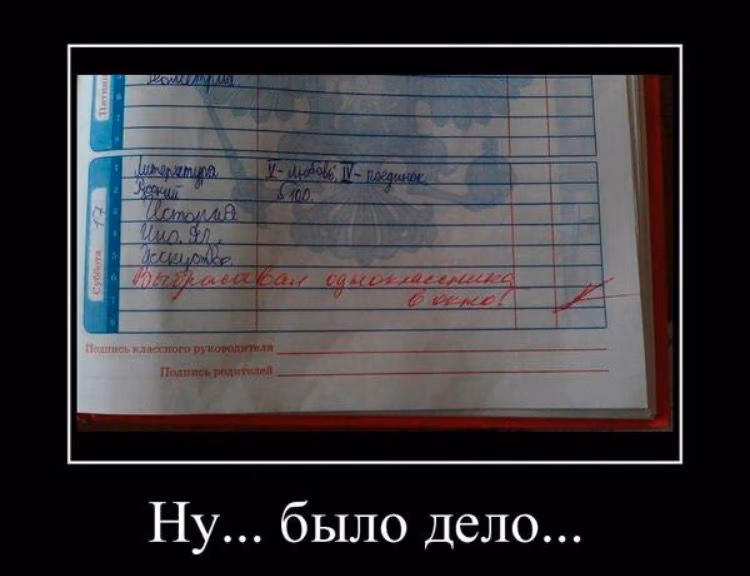 Пятница
Геометрия
7
8
Суббота 17
1 Литература V- любовь, IV- поединок
2 Русский § 100.
3 История
4 Ин. Яз.
5 Исскуство.
6 Выбрасавал одноклассника
7 в окно!
8
Подпись классного руководителя
Подпись родителей
Ну... было дело...